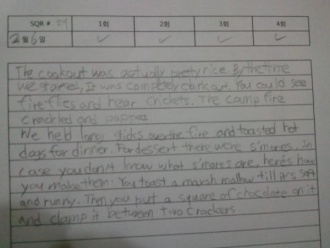 SQR #
1회 2회 3회 4회
2월 6일
The cookout was actually pretty nice. By the time
we it was completely You could see
fire flies and hear crickets. The camp fire
crackled and popped
We held long sticks over the fire and toasted hot
dogs for dinner. For dessert there were s'mores. In
case you don't know what s'mores are, here's how
you make them: You toast a marsh mallow till it's soft
and runny. Then you put a square of chocolate on it
and clamp it between two crackers